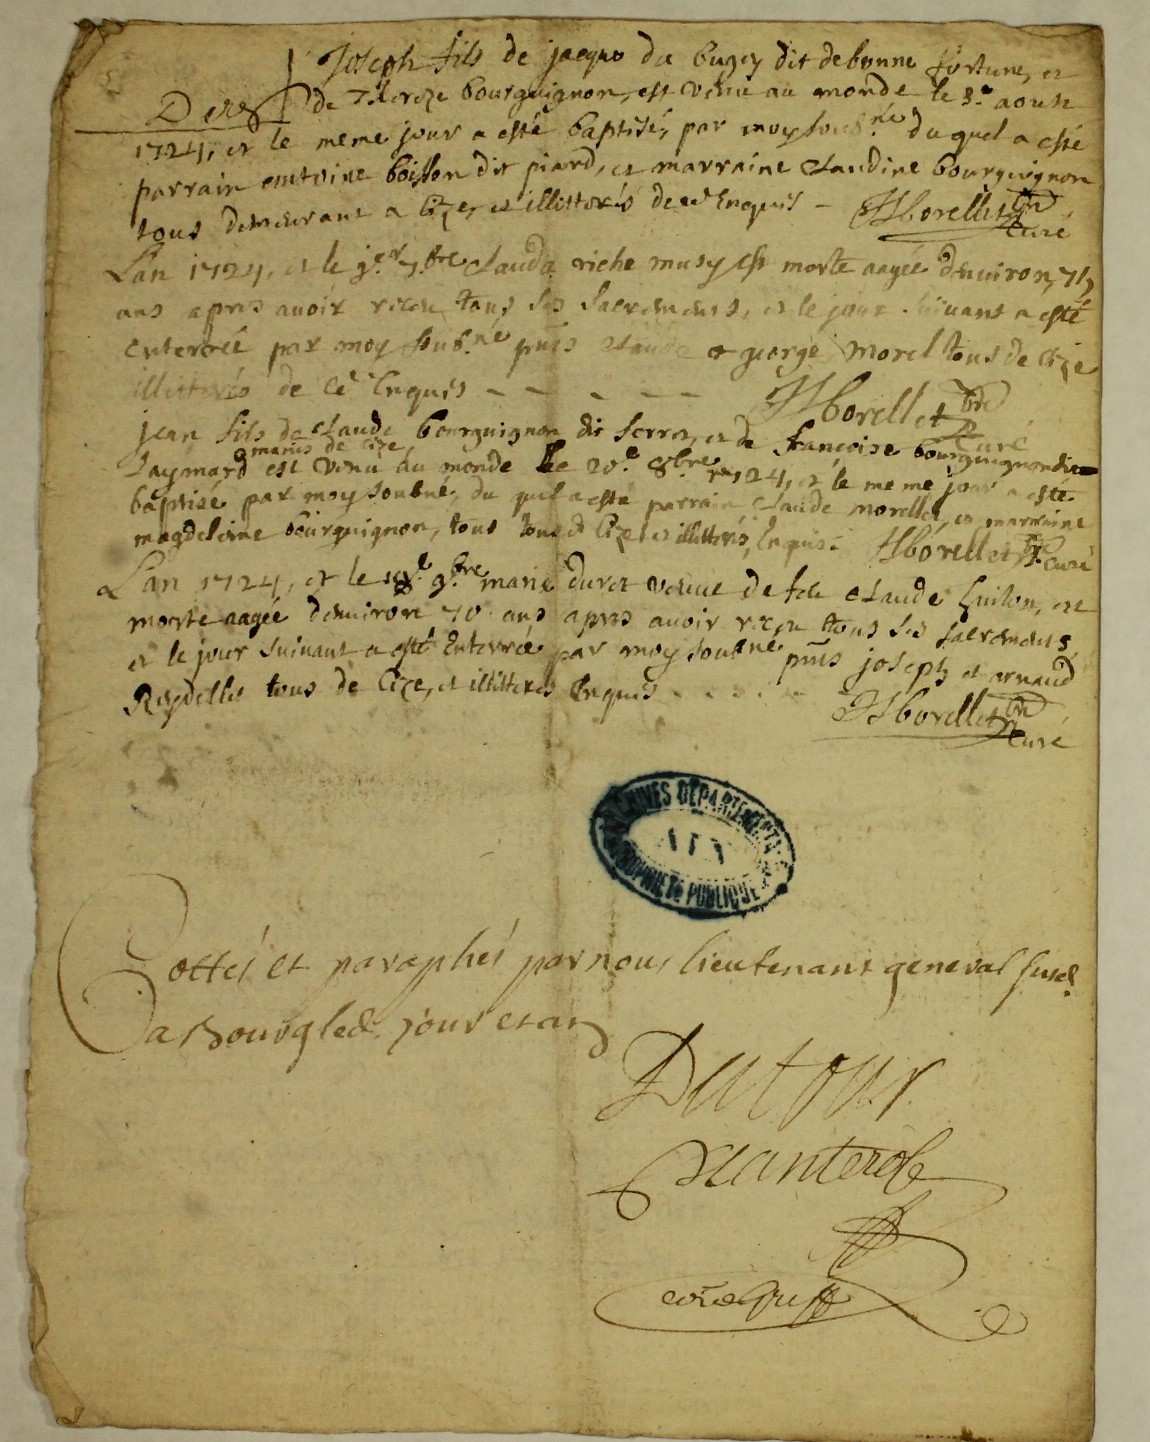 Joseph fils de jacque du bugey dit debonne fortune, et
Der
de Thereze bourguignon, est venu au monde le 3.e aoust
1724, et le meme jour a esté baptisé, par moy soub.né du quel a esté
parrain entoine boisson dit piard, et marraine Claudine bourguignon
tous demeurant a Cize, et illitterés de ce Enquis - JHborellet pbre
Curé
L'an 1724, et le 9.e 7.bre Clauda riche musy est morte aagée denuiron 75
ans apres avoir receu tous ses sacremens, et le jour suiuant a esté
enterrée par moy soub.né pnts Claude et george morel tous de Cize
illitterés de ce Enquis - - - - - JHborellet pbre
Curé
jean fils de Claude bourguignon dit ferroz, et de francoise bourguignon dit
mariés de cize
Laymard est venu au monde le 20.e 8.bre 1724, et le meme jour a esté
baptisé par moy soubné, du quel a esté parrain Claude morellet, et marraine
magdeleine bourguignon, tous de Cize et illitterés, Enquis. JHborellet p. Curé
L'an 1724, et le 9.bre marie duret veuue de feu Claude Guiton, est
morte aagée denuiron 70 ans apres avoir receu tous ses sacremens
et le jour suiuant a esté Enterrée par moy soubné pnts joseph et arnaud
Reydellet tous de Cize, et illitteres Enquis - - - - JHborellet pbre
Curé
ARCHIVES DÉPARTEMENTALES
AIN
PROPRIÉTÉ PUBLIQUE
Cottéi et paraphéi par nous lieutenant general susd.
a Bourg led. jour et an
Dutour